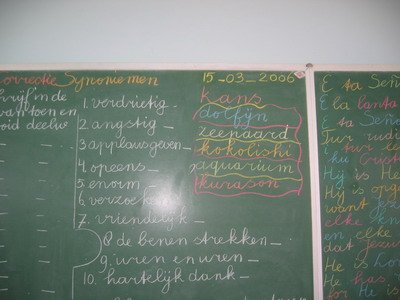 Correctie Synoniemen
15-03-2006
schrijf in de
van toen en
1. verdrietig_
2. angstig_
3 applausgeven_
4. opeens_
5. enorm
6. verzoeken
7. vriendelijk_
8 de benen strekken_
9. uren en uren_
10. hartelijk dank_
kans
dolfijn
zeenaard
kokolishi
aquarium
kurason
E ta Señ
E la lanta
E ta Señ
Tur rudi
tur le
ku Crist
Hij is He
Hij is opge
want Jezu
elke kn
en elke
dat Jezu
He is Lo
He has
for He is